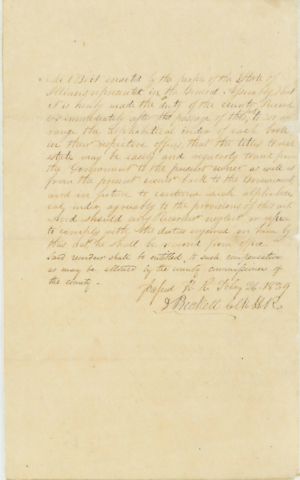 Be it enacted by the people of the State of
Illinois represented in the General Assembly that
it is hereby made the duty of the county Record
ers immediately after the passage of this to
range the Alphabetical index of each book
in their respective offices, that the titles to real
estate may be easily and regularly traced from
the Government to the present owner as well as
from the present owner back to the Government
and in future to continue such alphabet
ical index agreeably to the provisions of this act
And should any Recorder neglect or refuse
to comply with the duties required of him by
this Act he shall be removed from office
Said recorder shall be entitled to such compensation
as may be allowed by the county commissioners of
the county.
Passed H. R. Feby 26 1839
D Prickett Clk H. R.